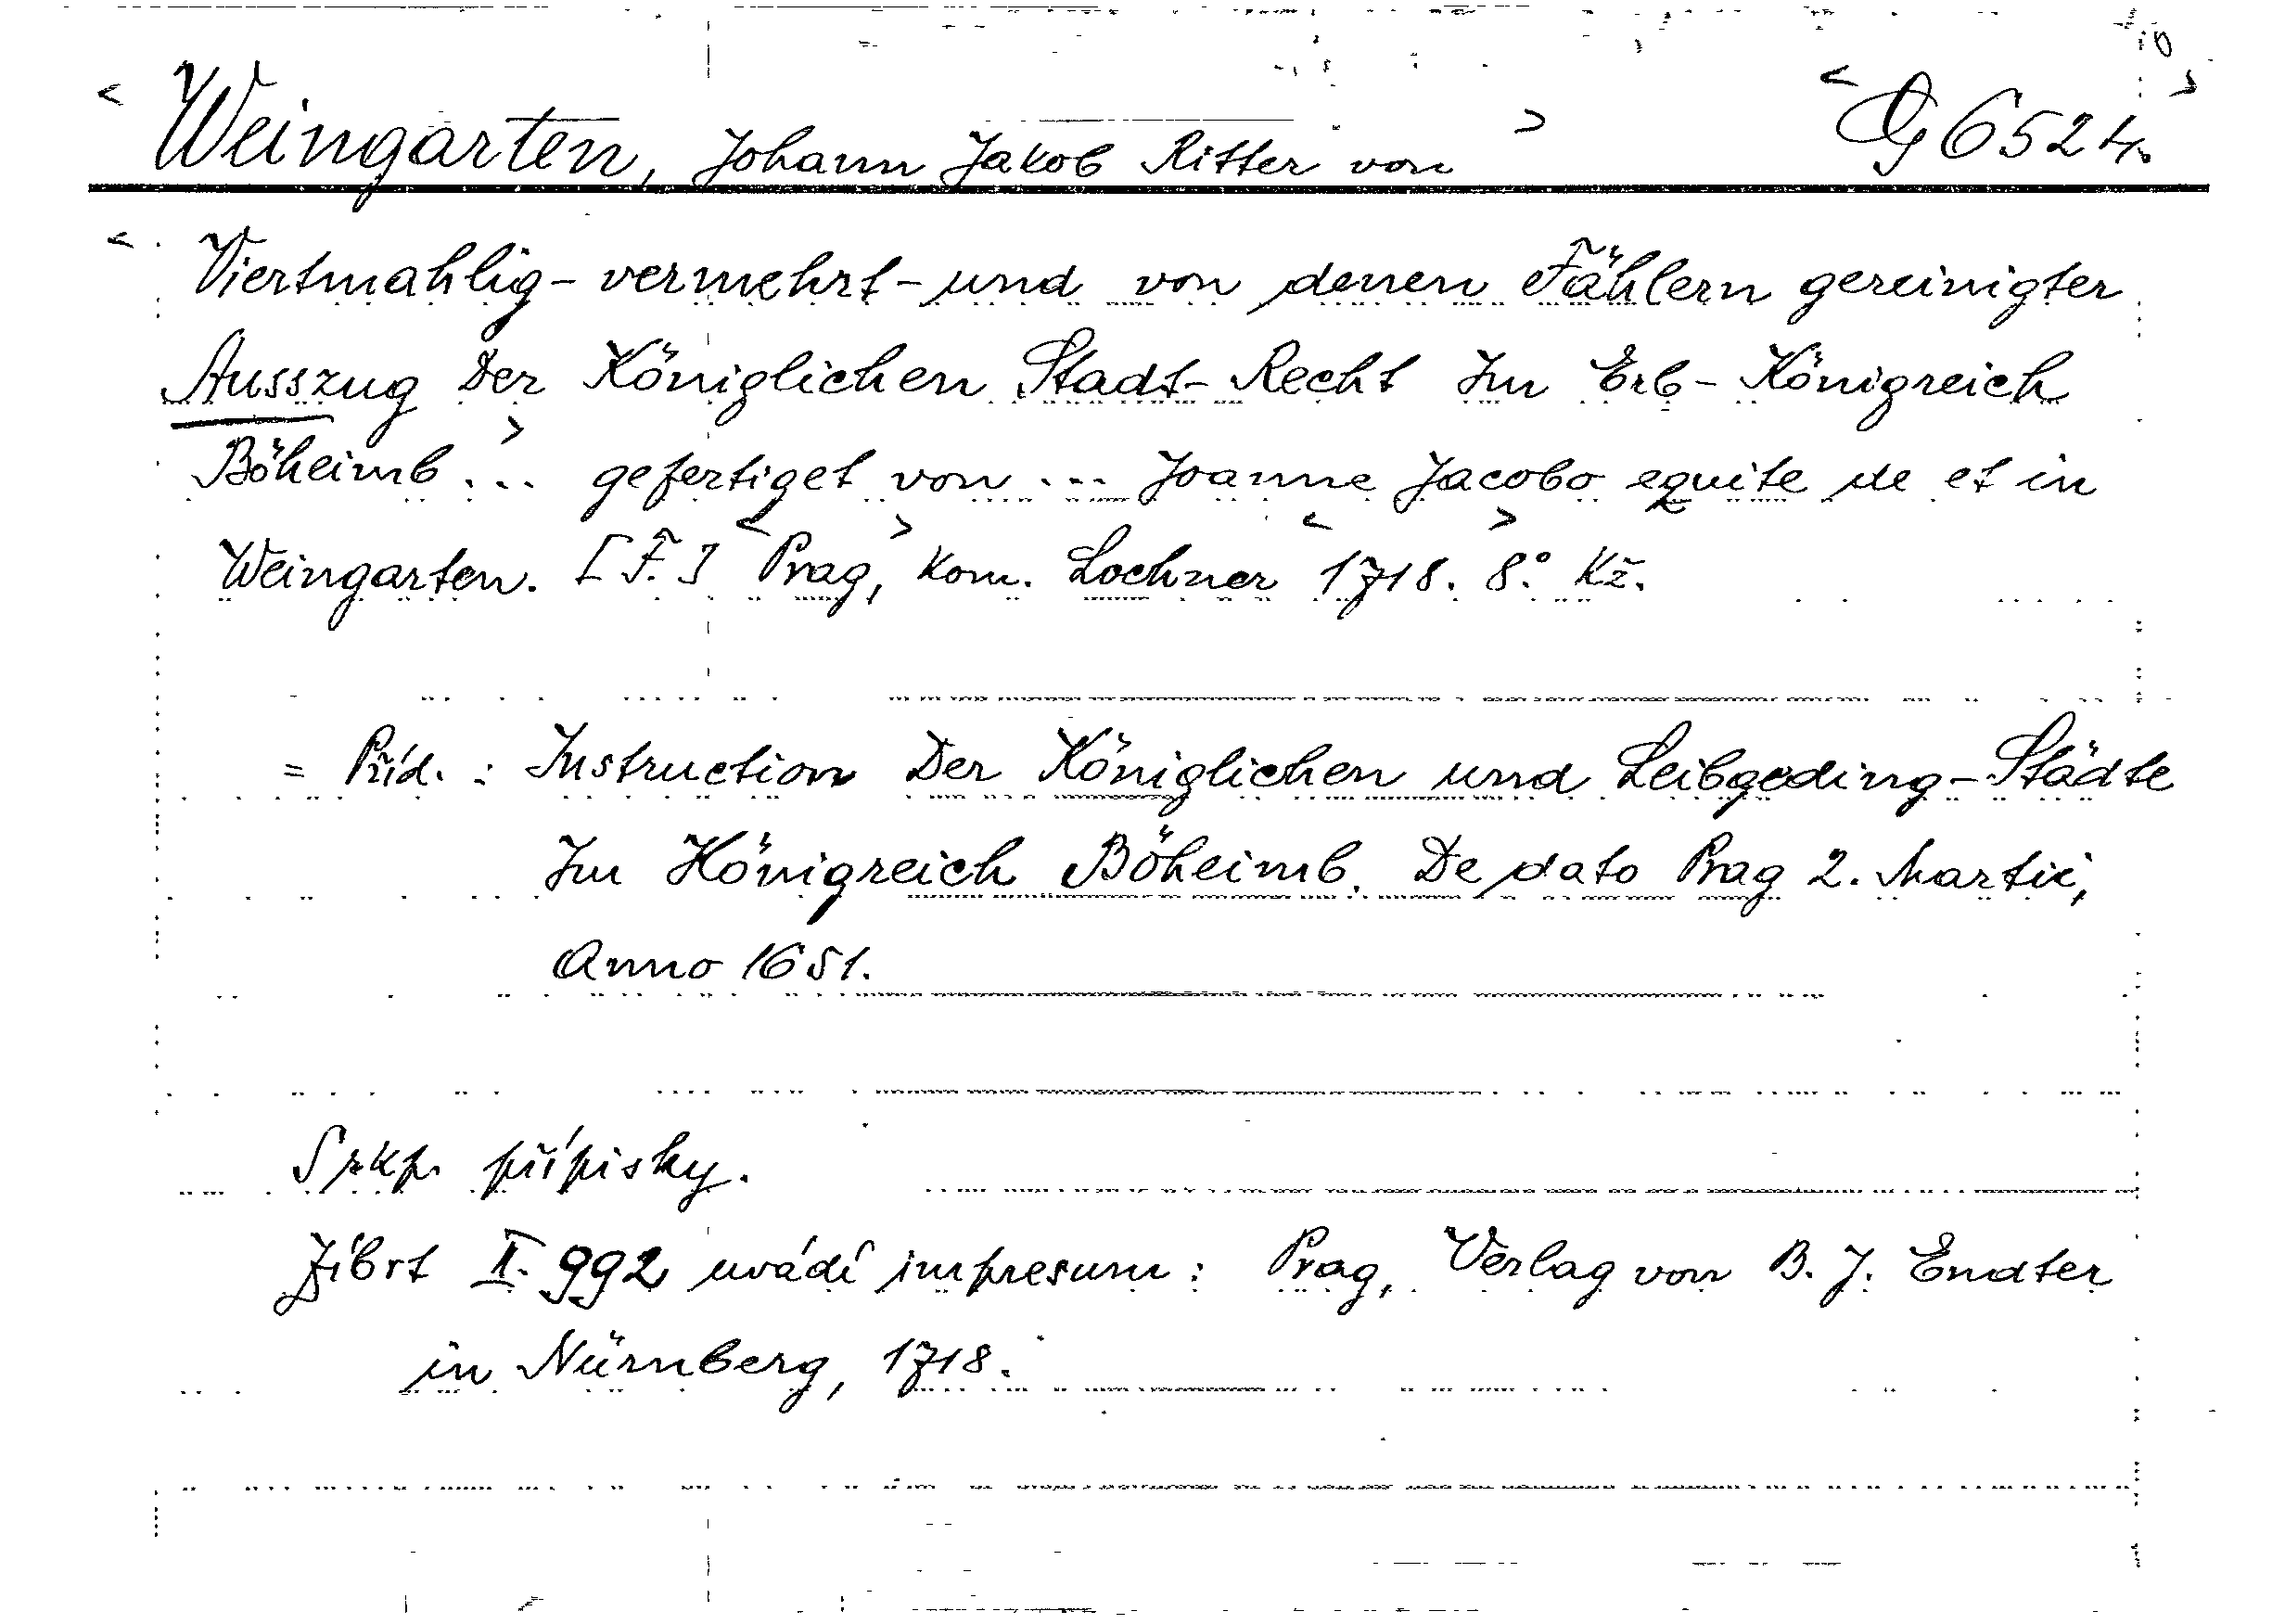 < Weingarten, Johann Jakob Ritter von > < G 6524. >
< Viertmahlig-vermehrt-und von denen Fählern gereinigter
Ausszug Der Königlichen Stadt-Recht Im Erb-Königreich
Böheimb > ... gefertiget von ... Joanne Jacobo equite de et in
Weingarten. [F.] < Prag, > Kom. Lochner < 1718. > 8° Kž.
= Příd. : Instruction Der Königlichen und Leibgeding-Städte
Im Königreich Böheimb. De dato Prag 2. Martii,
Anno 1651.
Srkp. přípisky.
Zíbrt II. 992 uvádí impresum: Prag, Verlag von B. J. Endter
in Nürnberg, 1718.